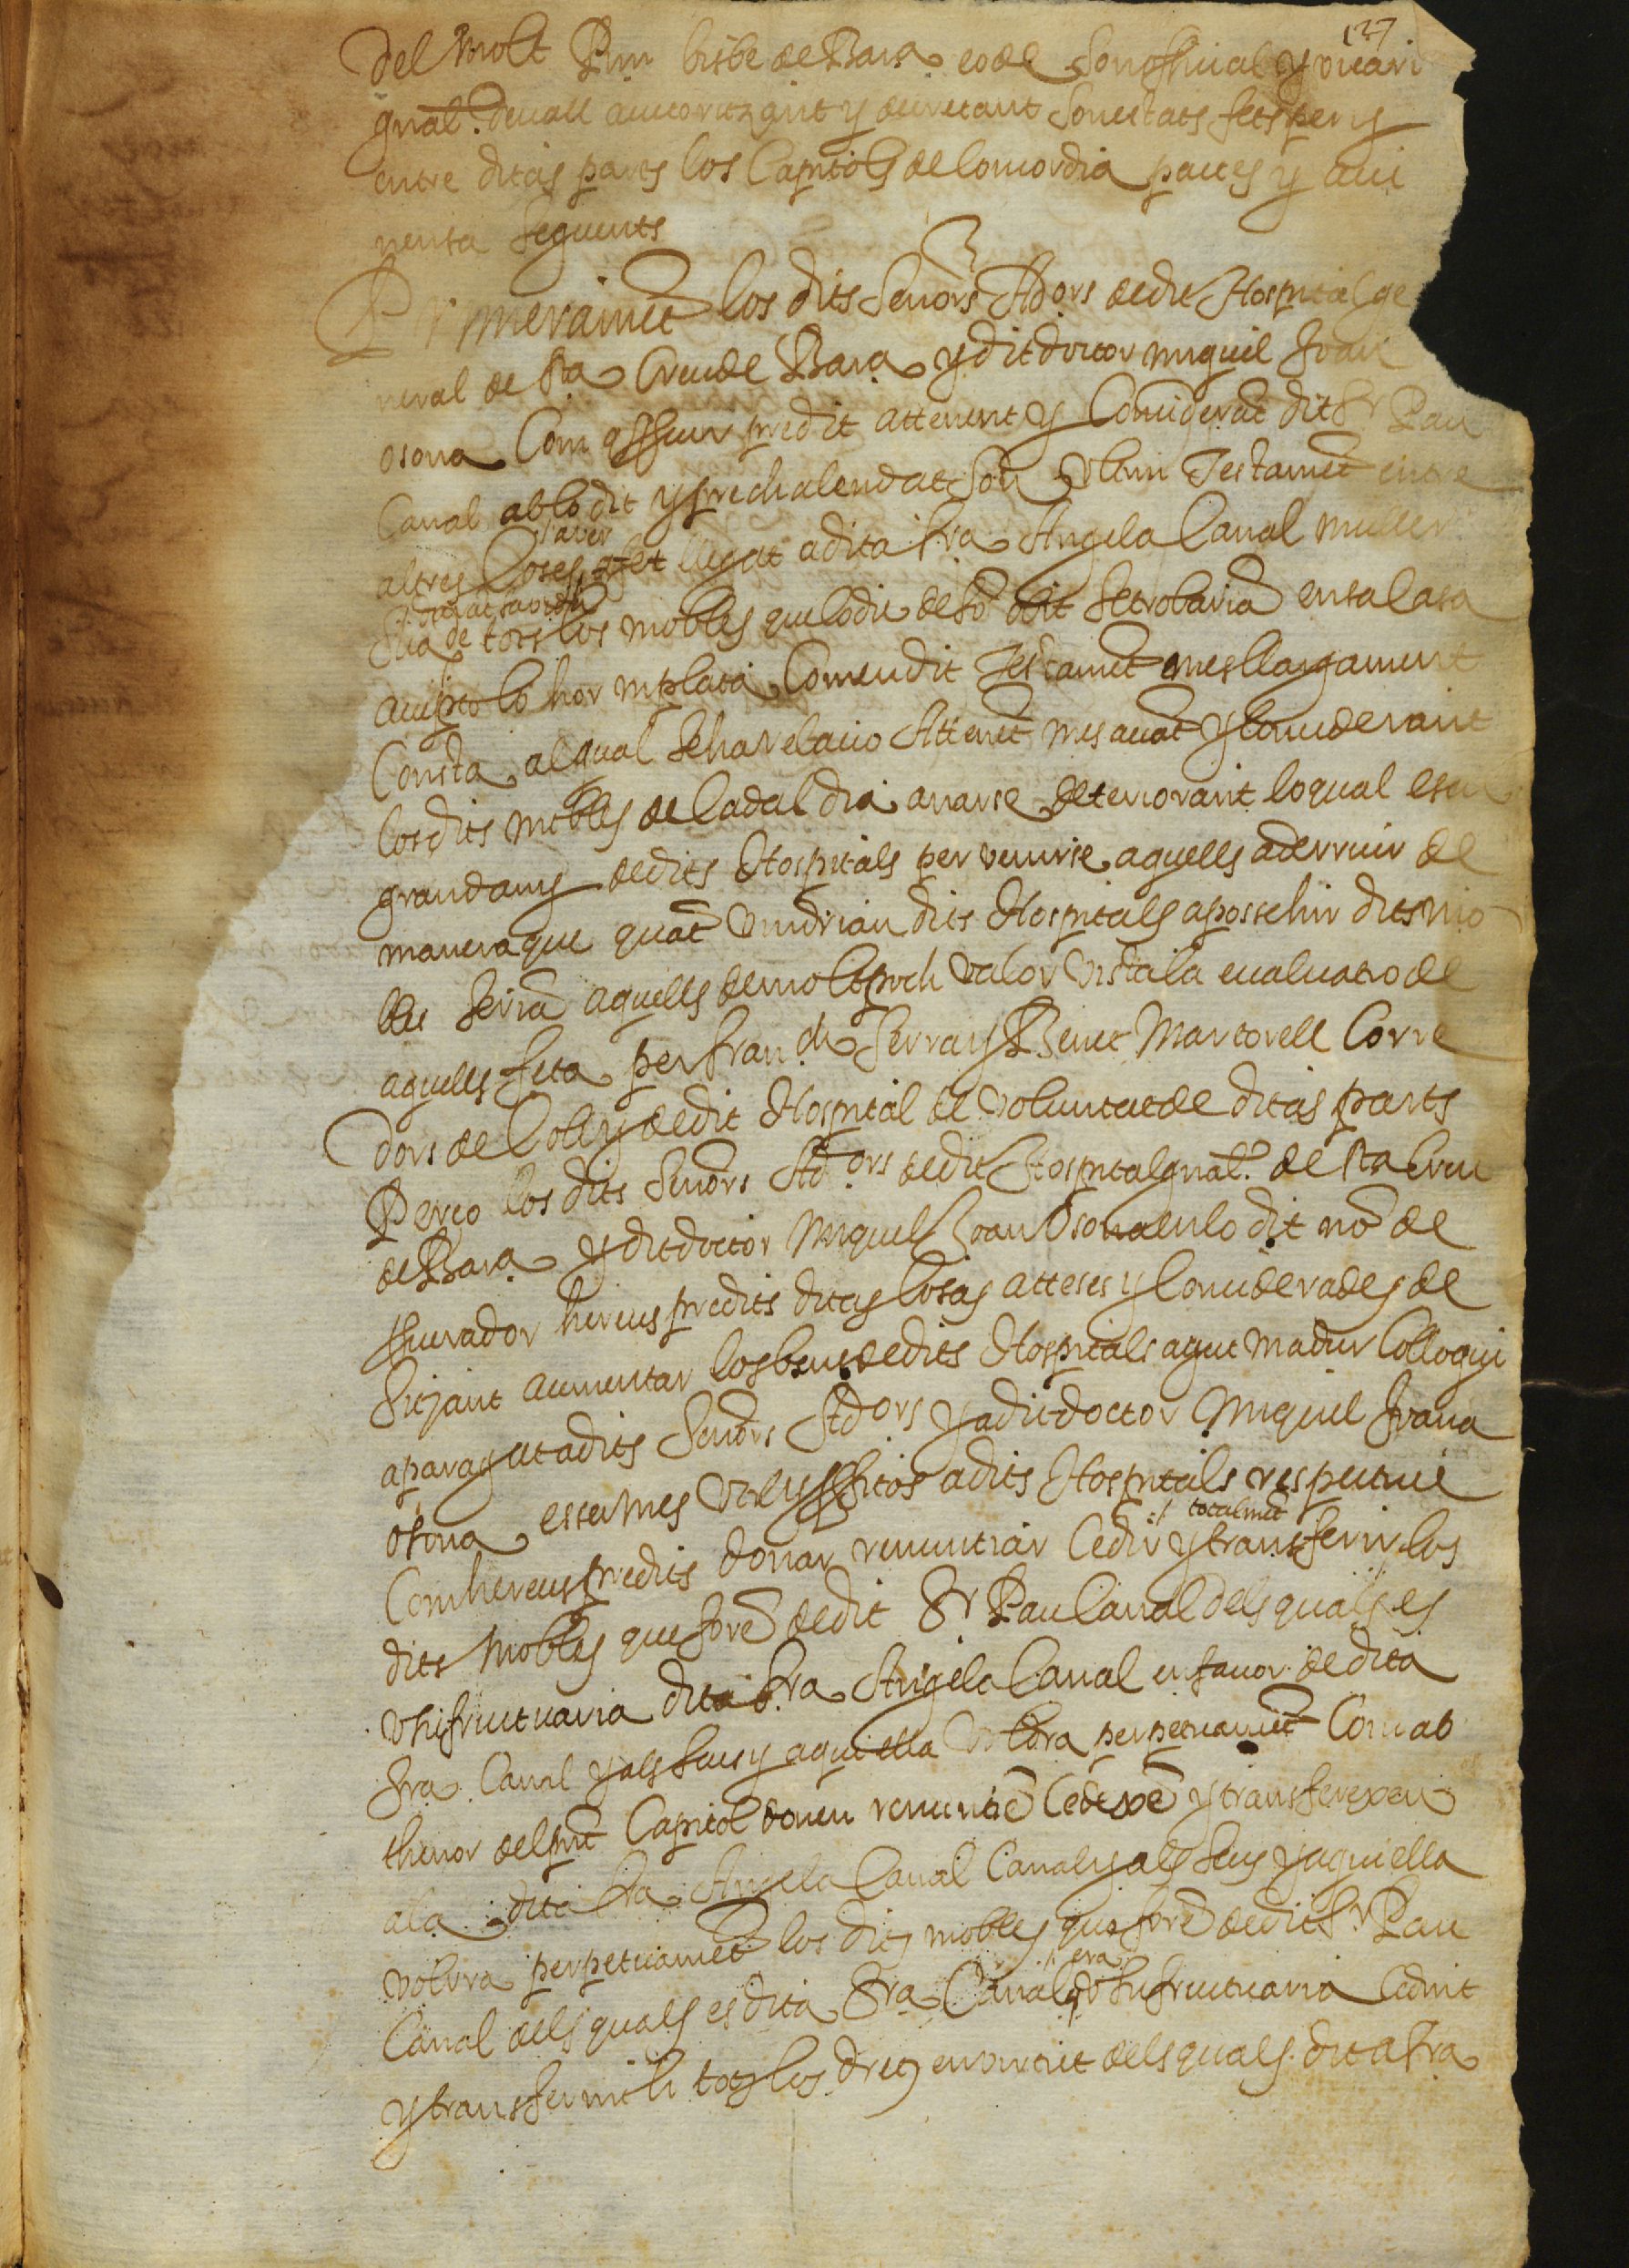 127
del molt Rnt bisbe de Barna eo de son official y vicari
gnal. devall auctoritzant y decretant son estats fets per y
entre ditas parts los Capitols de Concordia pactes y avi
nensa seguents
Primerament los dits Senors Ad.ors de dit Hospital ge
neral de sta Creu de Barna y dit doctor miquel Joan
osona Com predit attenent y Considerat dit Sr Pau
Canal ab lo dit y prechalendat son ultim Testamet entre
altres Coses aver fet llegat a dita sra Angela Canal muller
sua de tots los mobles que lo die de so obit se trobaria en sa casa
accepto lo hor y plata Com en dit Testamet mes llargament
Consta al qual se ha relatio Attenet mes avat y Considerant
los dits mobles de Cada dia anarse deteriorant lo qual es en
gran dany de dits Hospitals per venirse aquells a derruir de
manera que quat vindrian dits Hospitals a possehir dits mo
bles seria aquells de molt poch valor vista la evaluatio de
aquells feta per Fran.ch Serra y Benet Martorell Corre
dors de Coll y de dit Hospital de voluntat de ditas parts
Perço los dits Senors Ad.ors de dit Hospital gnal. de sta Creu
de Barna y dit doctor Miquel Joan Osona en lo dit no de
hereus predits ditas Cosas atteses y Considerades de
sitjant aumentar los bens de dits Hospitals agut madur Colloqui
a paragut a dits Senors Ad.ors y a dit doctor Miquel Joan
osona esser mes util y a dits Hospitals respective
:/ totalmet
Com hereus predits donar renuntiar Cedir y transferir los
dits mobles que fore de dit Sr Pau Canal dels quals es
usufructuaria dita Sra Angela Canal en favor de dita
Sra Canal y als seus y a qui ella volra perpetuamet Com ab
thenor del pnt Capitol donen renuntie Cedexe y transferexen
a la dita sra Angela Canal Canal y als seus y a qui ella
volrra perpetuamet los dits mobles que fore de dit Sr Pau
Canal dels quals es dita Sra Canal era usufructuaria Cedint
y transferintli tots los drets en virtut dels quals dita sra